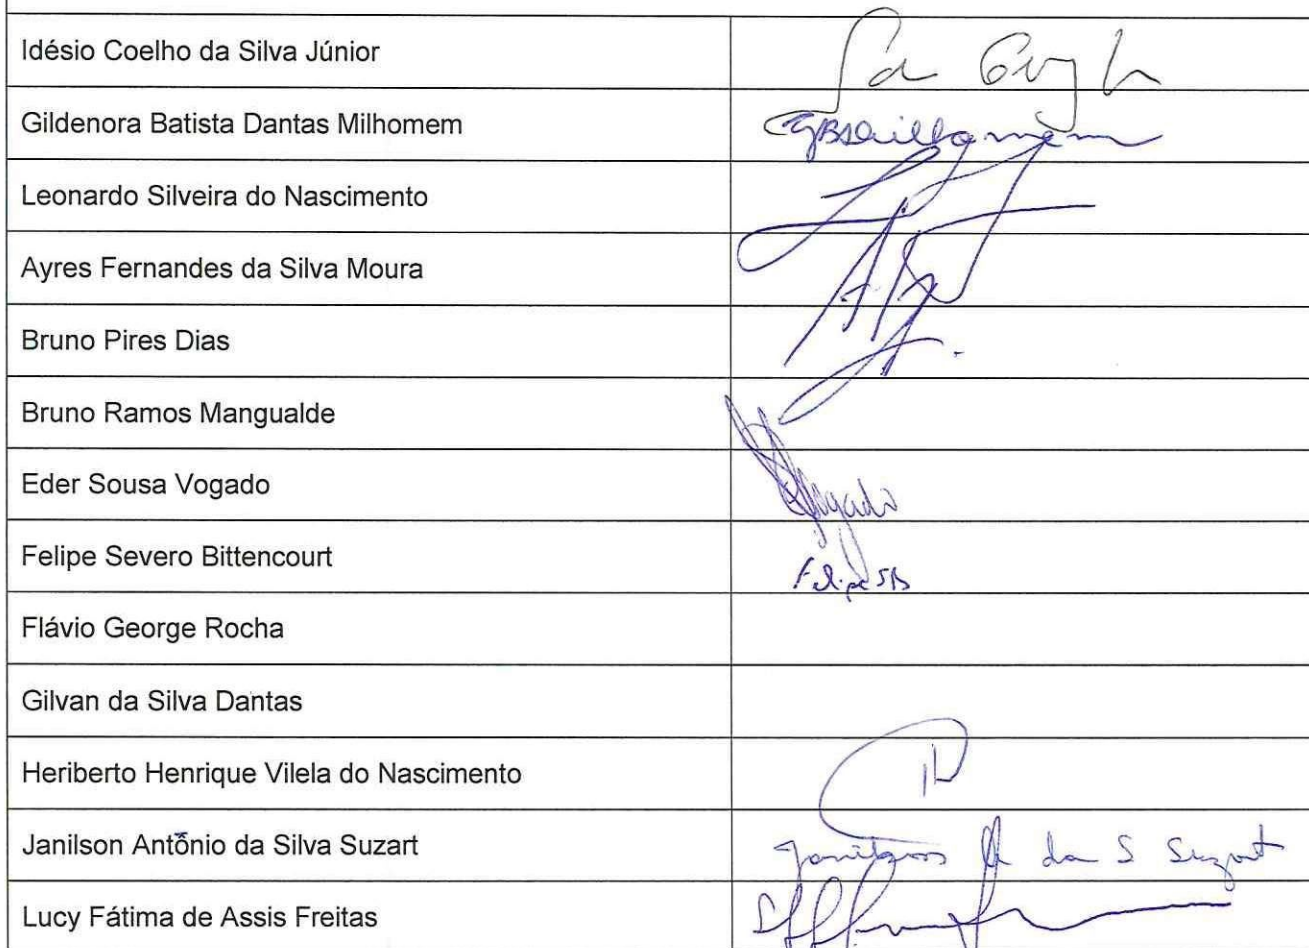 Idésio Coelho da Silva Júnior
Gildenora Batista Dantas Milhomem
Leonardo Silveira do Nascimento
Ayres Fernandes da Silva Moura
Bruno Pires Dias
Bruno Ramos Mangualde
Eder Sousa Vogado
Felipe Severo Bittencourt
Felipe SB
Flávio George Rocha
Gilvan da Silva Dantas
Heriberto Henrique Vilela do Nascimento
Janilson Antônio da Silva Suzart
Janilson A da S Suzart
Lucy Fátima de Assis Freitas